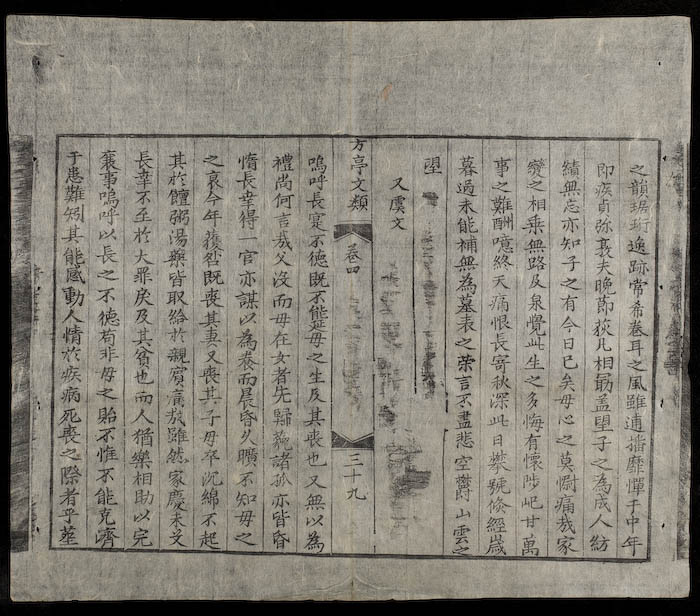 之韻琚珩逸跡常希卷耳之風雖連播靡憚于中年
即疾貞弥夫晚節荻凡相勗盖望子之為成人紡
績無忘亦知子之有今日已矣母心之莫慰痛哉家
變之相乘無路及泉覺此生之多悔有懷陟屺甘萬
事之難酬噫終天痛恨長寄秋深此日攀號倏經歲
暮過未能補無為墓表之榮言不盡悲空欝山雲之
望
又虞文
方亭文類 卷四 三十九
嗚呼長寔不德既不能延母之生及其喪也又無以為
禮尚何言哉父沒而母在女者先歸藐諸孤亦皆昏
惰長幸得一官亦謀以為養而晨昏久曠不知母之
之哀今年然既喪其妻又喪其子母卒沉綿不起
其於饘粥湯藥皆取給於親賓痛哉雖然家慶未艾
長幸不至於大罪戾及其貧也而人猶樂相助以完
襄事嗚呼以長之不德苟非母之貽不惟不能克濟
于患難矧其能感動人情於疾病死喪之際者乎塋